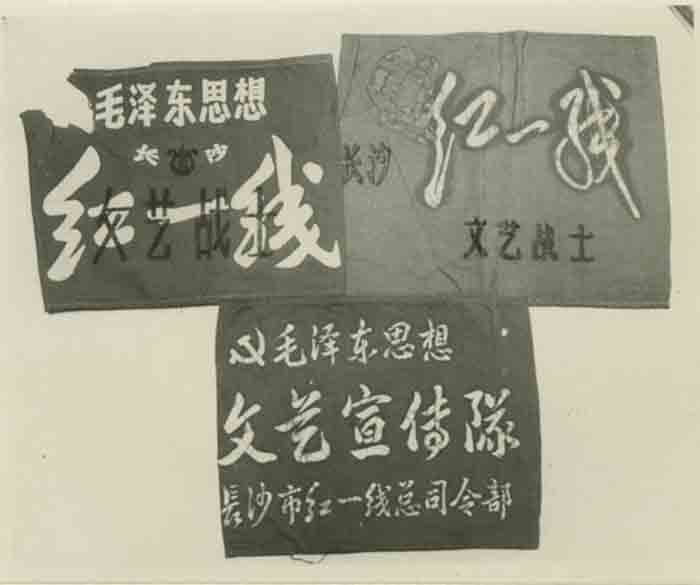 毛泽东思想
长沙
红一线
文艺战士
红一线
长沙
文艺战士
毛泽东思想
文艺宣传隊
長沙市红一线总司令部